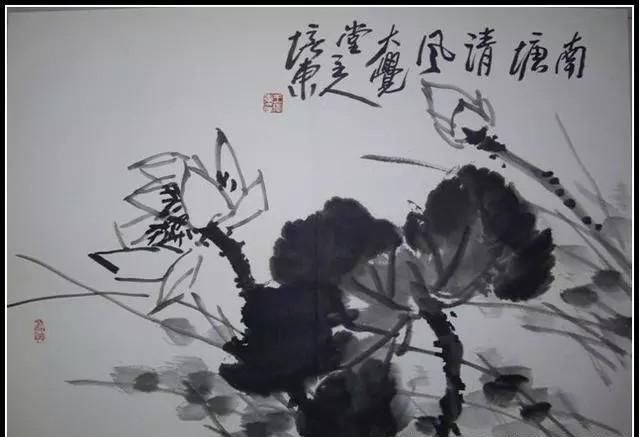 南塘清风
大觉堂主人
培東